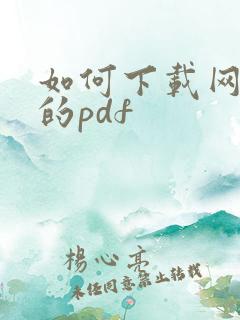 如何下载网
的pdf
杨心亮
未经同意禁止转载